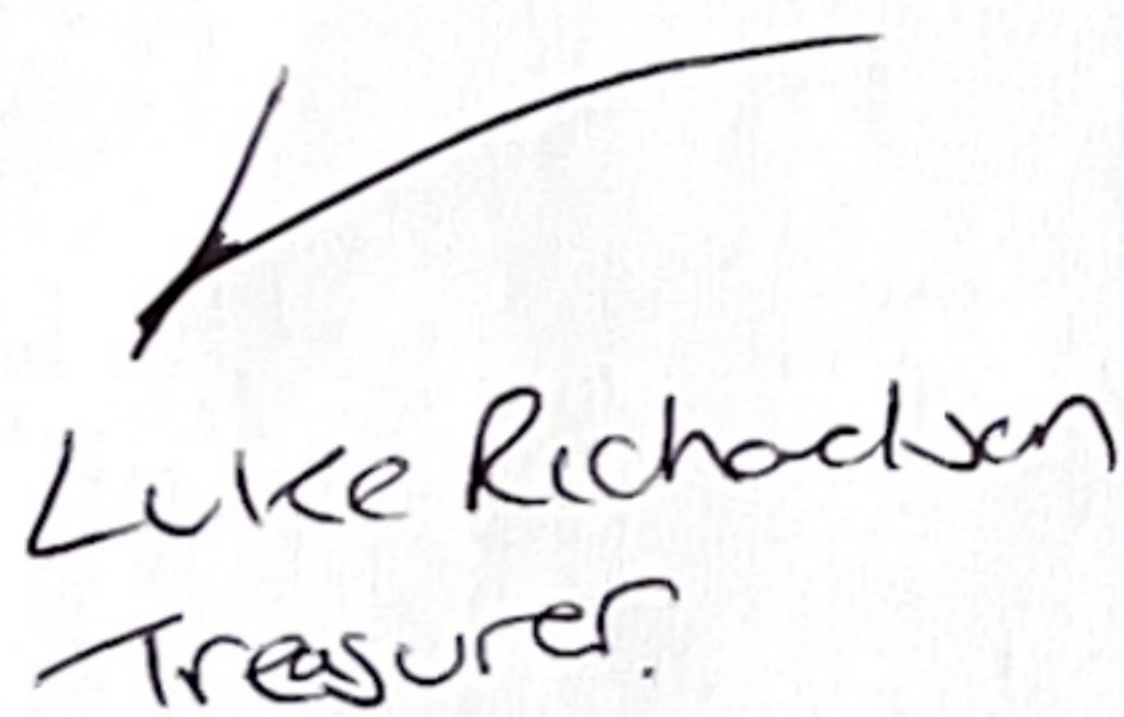 Luke Richardson
Treasurer.